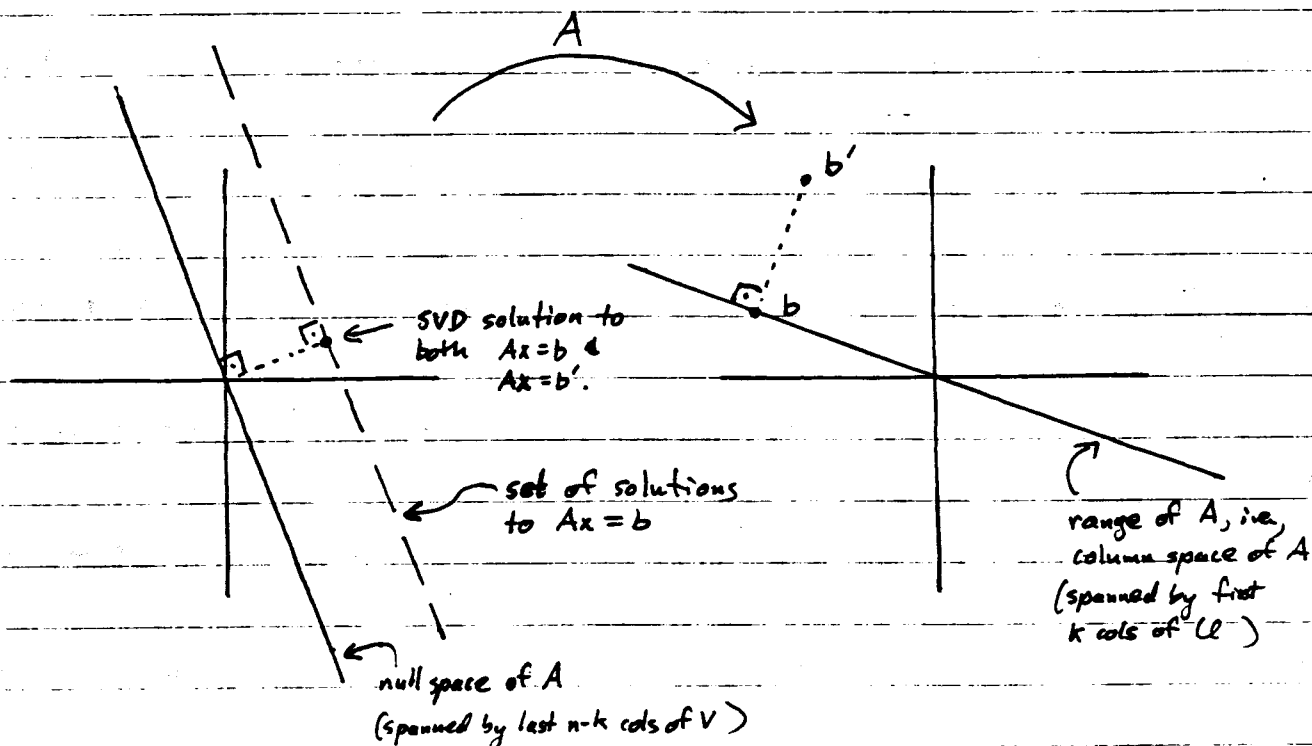 A
b'
b
SVD solution to
both Ax = b &
Ax = b'.
set of solutions
to Ax = b
range of A, i.e.,
column space of A
(spanned by first
k cols of U )
null space of A
(spanned by last n-k cols of V )